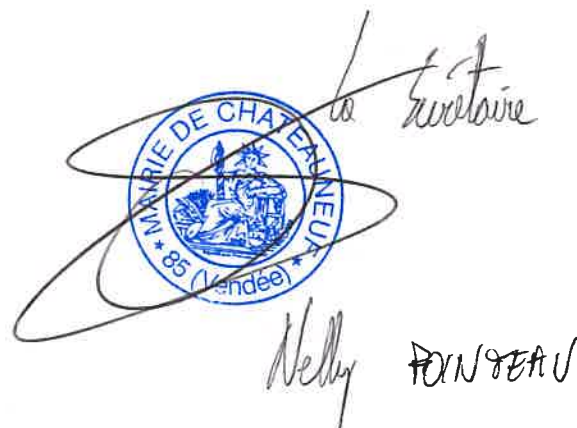 La Secrétaire
MAIRIE DE CHATEAUNEUF
* 85 (Vendée) *
Nelly POINTEAU